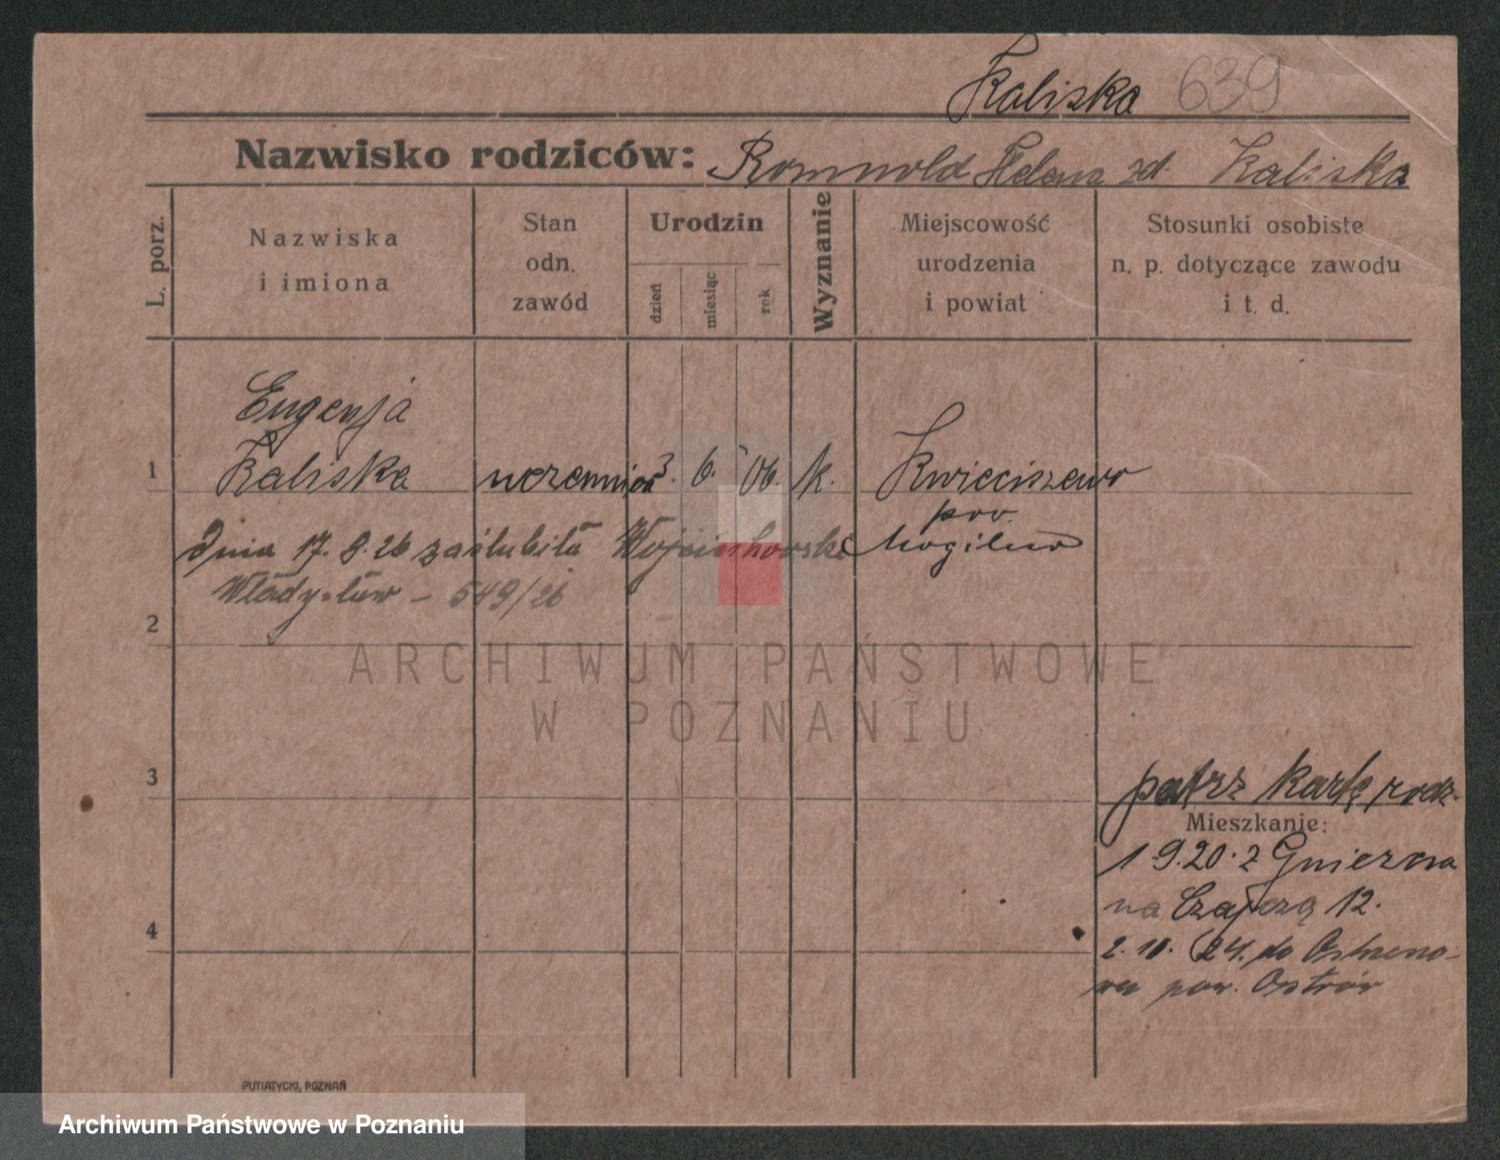 Kaliska 639
Nazwisko rodziców: Romuold Helena zd. Kaliska
L. porz.
Nazwiska
i imiona
Stan
odn.
zawód
Urodzin
dzień
miesiąc
rok
Wyznanie
Miejscowość
urodzenia
i powiat
Stosunki osobiste
n. p. dotyczące zawodu
i t. d.
Eugenja
1 Kaliska uczennica 3. 6. 06. k. Kwieciszewo
pow.
Mogilno
Dnia 17. 8. 26 zaślubiła Wojciechowski
Władysław – 549/26
2
ARCHIWUM PAŃSTWOWE
W POZNANIU
3
patrz kartę rodz.
Mieszkanie:
1 9.20. z Gniezna
na Czajczą 12.
4
2. 10. 24. do
pow. Ostrów
PUTIATYCKI, POZNAŃ
Archiwum Państwowe w Poznaniu